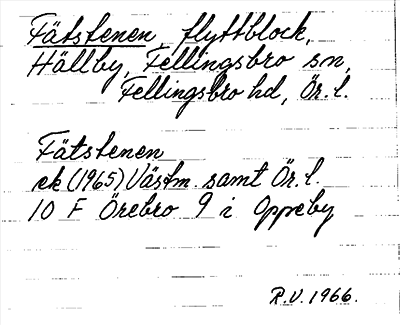 Fätstenen flyttblock,
Hällby, Fellingsbro sn,
Fellingsbro hd, Ör. l.
Fätstenen
ek (1965) Västm. samt Ör. l.
10 F Örebro 9 i Oppeby
R.V. 1966.